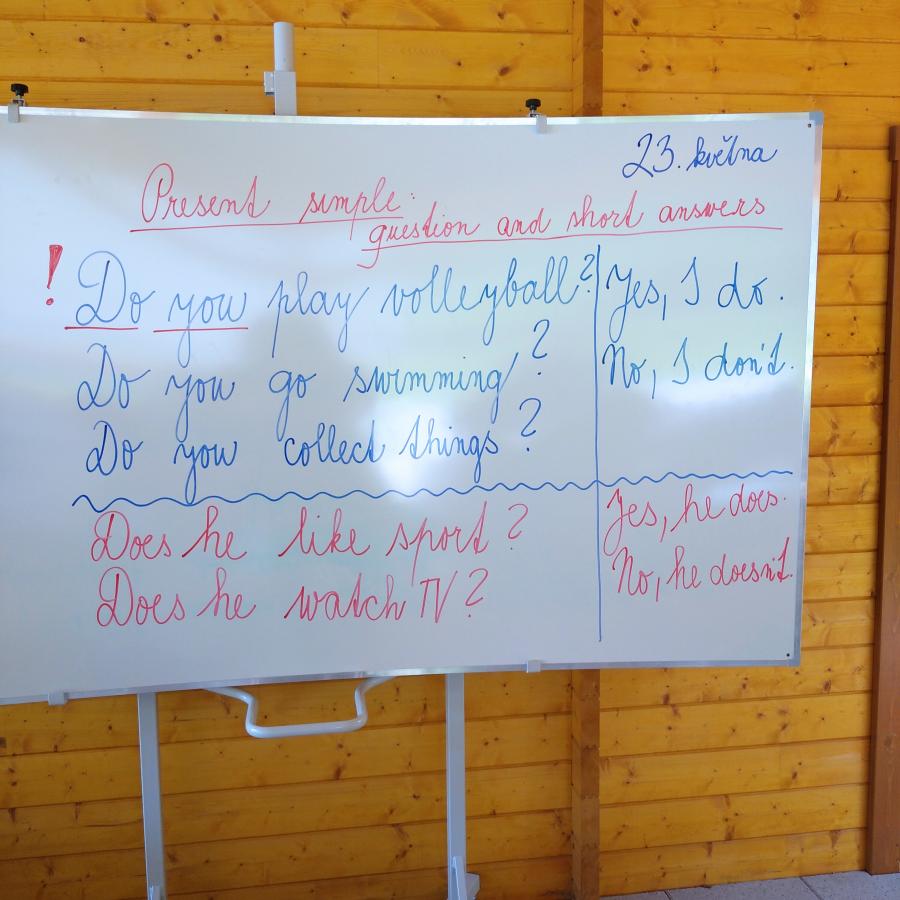 23. května
Present simple:
question and short answers
! Do you play volleyball? Yes, I do.
Do you go swimming? No, I don't.
Do you collect things?
Does he like sport? Yes, he does.
Does he watch TV? No, he doesn't.